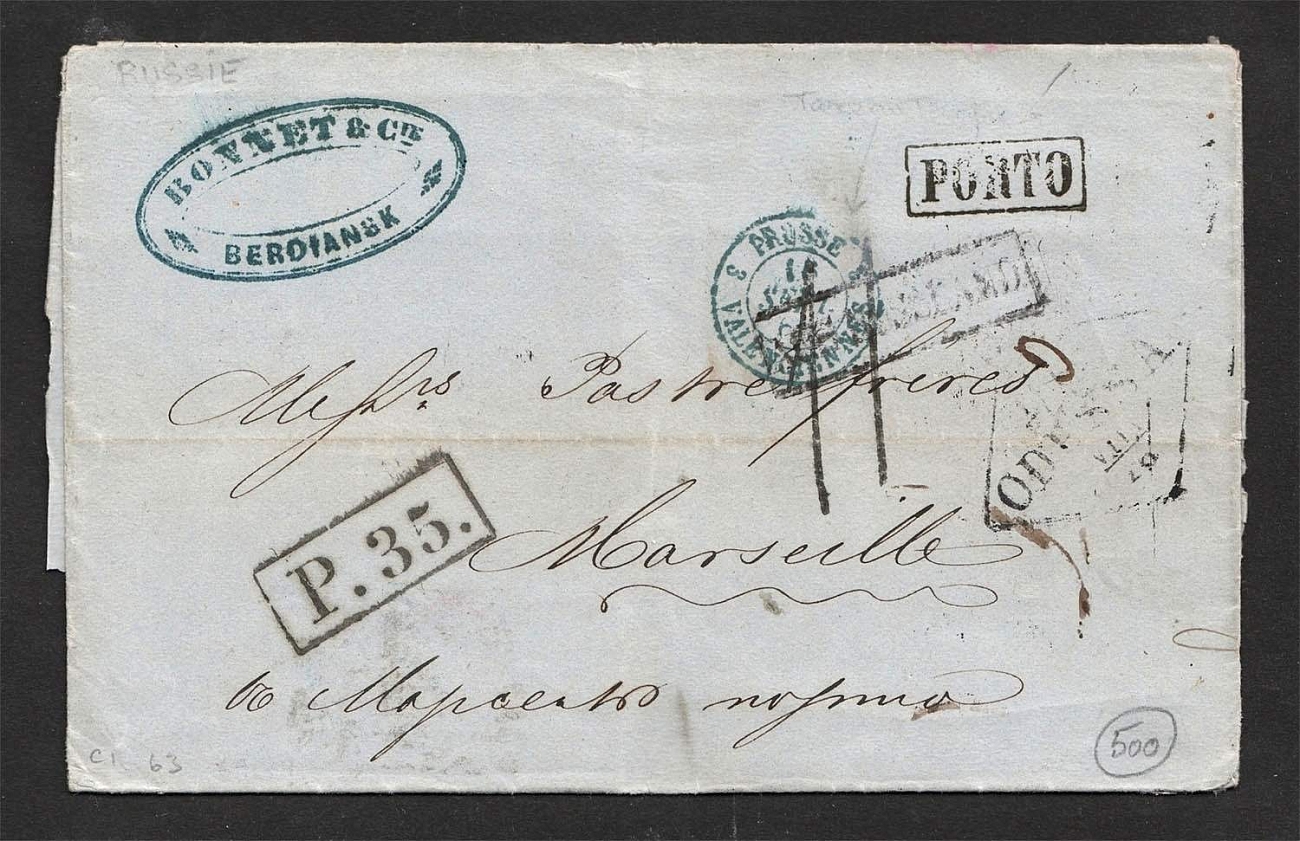 RUSSIE
BONNET & CIE
BERDIANSK
PORTO
PRUSSE
3 VALENCIENNES 3
Messrs Pastre frères
P. 35.
Marseille
въ Марсель
CL 63
500